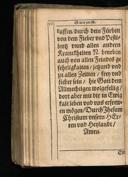 lassen durch dein Sterben
von dem Fieber vnd Pesti-
lentz vnnd allen andern
Kranckheiten N. benemen
auch von allen Feinds ge-
sehrligkaiten, jetzund vnd
zu allen Zeiten, frey vnd
sicher sein, bis Gott den
Allmechtigen wolgefellig,
dort aber mit dir in Ewig
keit leben vnd vns erfrew-
en mögen, Durch Jhesum
Christum vnsern HEr-
ren vnd Heylandt,
Amen.